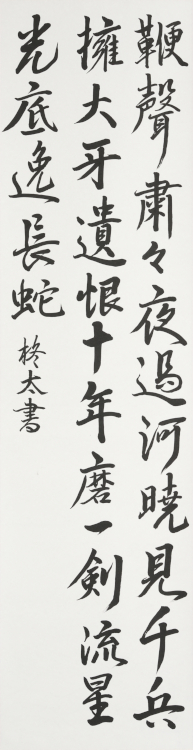 鞭聲肅々夜過河曉見千兵
擁大牙遺恨十年磨一剣流星
光底逸長蛇 柊太書